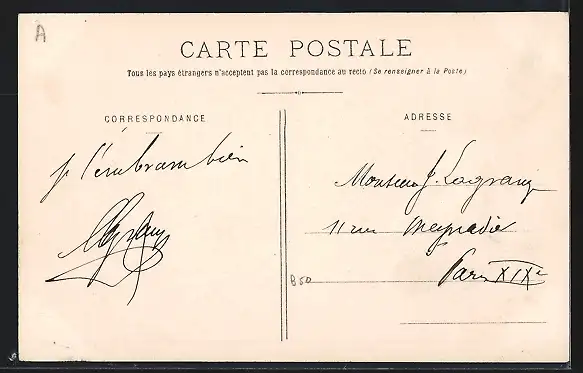 A
CARTE POSTALE
Tous les pays étrangers n'acceptent pas la correspondance au recto (Se renseigner à la Poste)
CORRESPONDANCE
ADRESSE
je t'embrasse bien
Monsieur J. Lagrange
11 rue Meynadier
Paris XIXe
B50